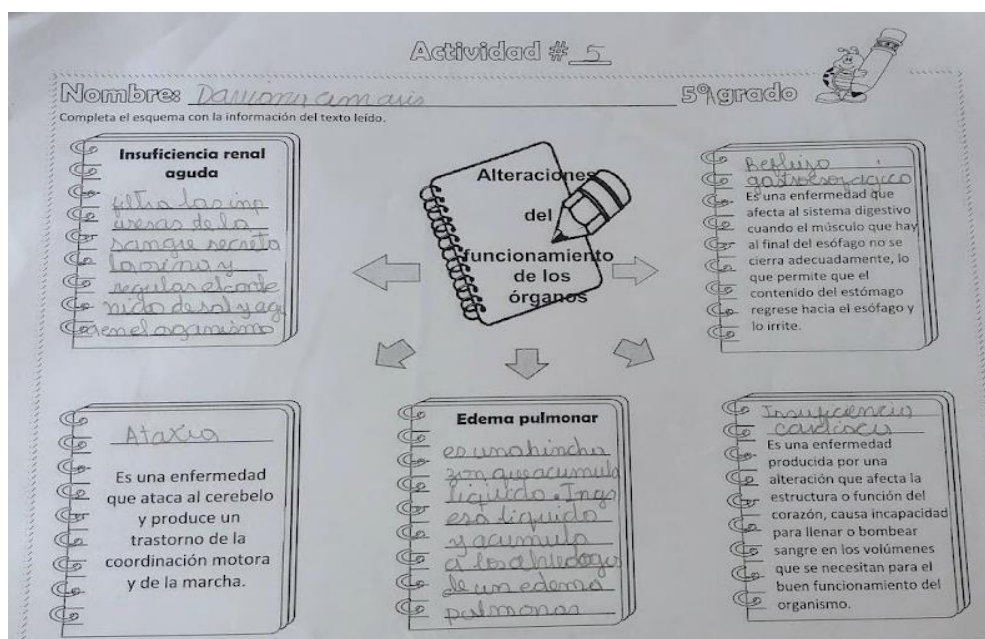 Actividad # 5
Nombre:
5° grado
Completa el esquema con la información del texto leído.
Insuficiencia renal
aguda
filtra las inp
uresas de la
sangre secreta
la orina y
regulas el conte
nido de sal y agu
a en el organismo
Alteraciones
del
funcionamiento
de los
órganos
Reflujo
gastroesofágico
Es una enfermedad que
afecta al sistema digestivo
cuando el músculo que hay
al final del esófago no se
cierra adecuadamente, lo
que permite que el
contenido del estómago
regrese hacia el esófago y
lo irrite.
Ataxia
Es una enfermedad
que ataca al cerebelo
y produce un
trastorno de la
coordinación motora
y de la marcha.
Edema pulmonar
es una hincha
zon que acumula
liquido. Ings
esa liquido
y acumula
de un edema
pulmonar
Insuficiencia
cardiaca
Es una enfermedad
producida por una
alteración que afecta la
estructura o función del
corazón, causa incapacidad
para llenar o bombear
sangre en los volúmenes
que se necesitan para el
buen funcionamiento del
organismo.